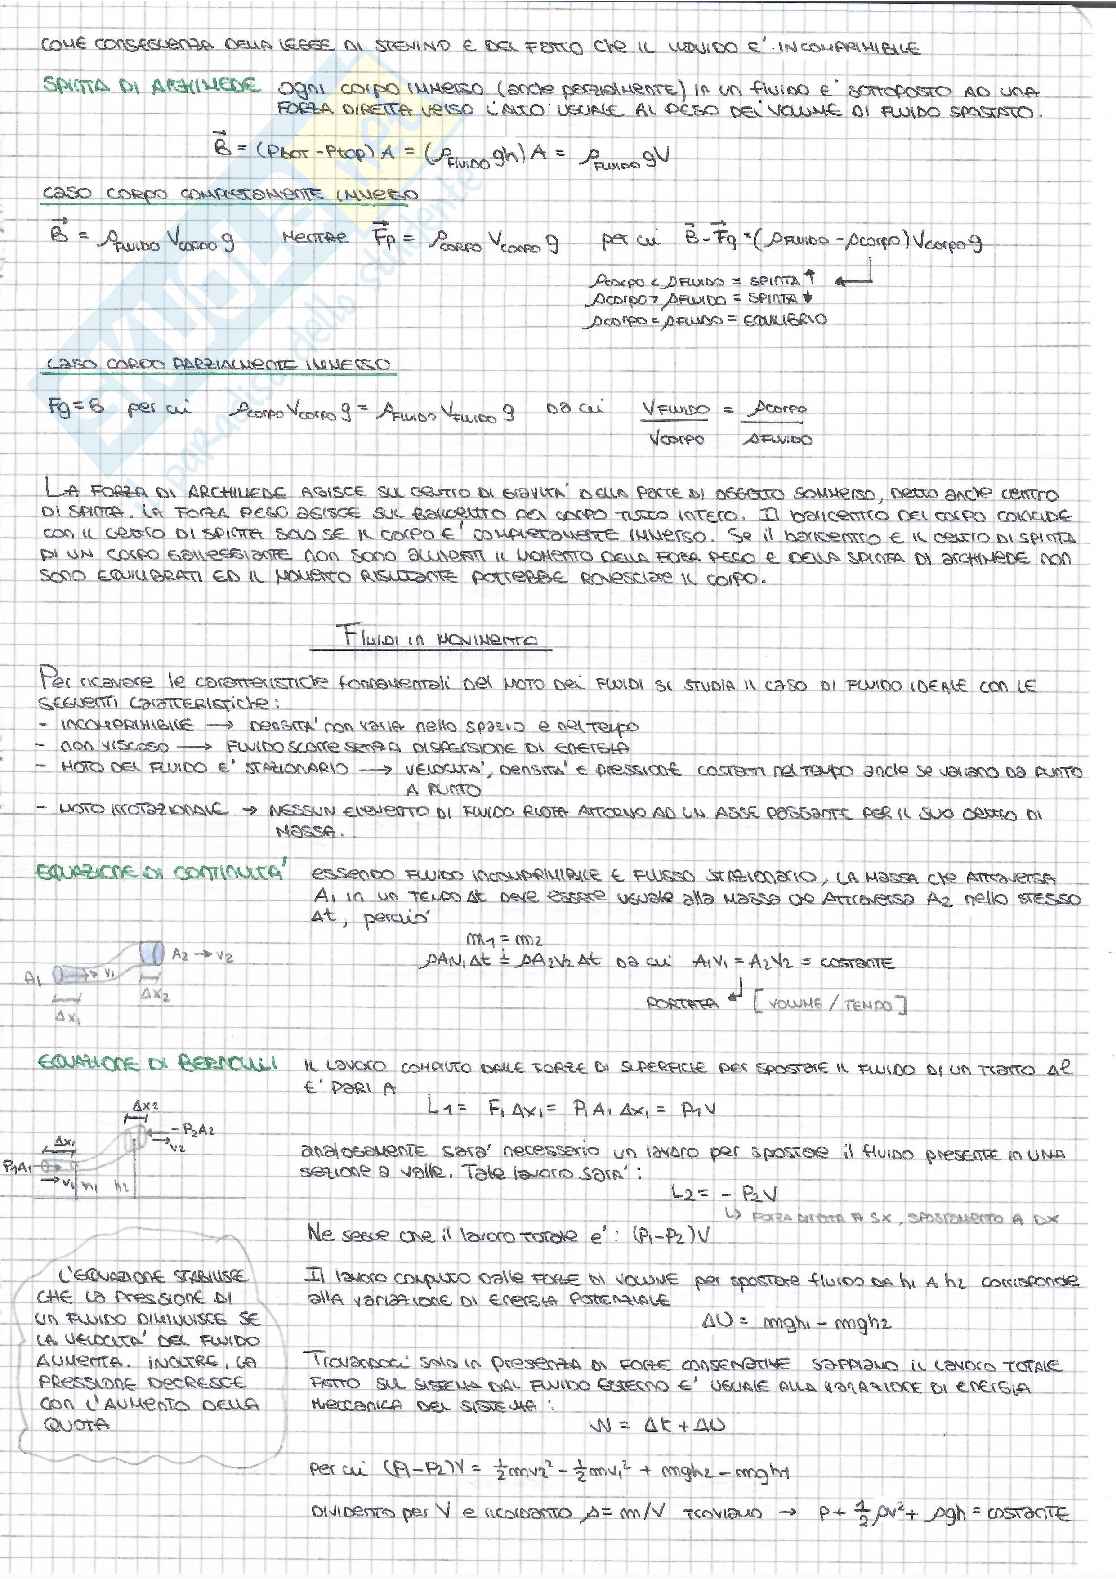 COME CONSEGUENZA DELLA LEGGE DI STEVINO E DEL FATTO CHE IL LIQUIDO E' INCOMPRIMIBILE
SPINTA DI ARCHIMEDE ogni corpo immerso (anche parzialmente) in un fluido e' sottoposto ad una
forza diretta verso l'alto uguale al peso del volume di fluido spostato.
B⃗ = (Pbot - Ptop) A = (ρFLUIDO gh) A = ρFLUIDO gV
CASO CORPO COMPLETAMENTE IMMERSO
B⃗ = ρFLUIDO VCORPO g MENTRE F⃗p = ρCORPO VCORPO g per cui B⃗ - F⃗g = (ρFLUIDO - ρcorpo) Vcorpo g
ρcorpo < ρFLUIDO = SPINTA ↑
ρcorpo > ρFLUIDO = SPINTA ↓
ρcorpo = ρFLUIDO = EQUILIBRIO
CASO CORPO PARZIALMENTE IMMERSO
Fg = B per cui ρcorpo Vcorpo g = ρFLUIDO VFLUIDO g da cui VFLUIDO / Vcorpo = ρcorpo / ρFLUIDO
LA FORZA DI ARCHIMEDE AGISCE SUL CENTRO DI GRAVITA' DELLA PARTE DI OGGETTO SOMMERSO, DETTO ANCHE CENTRO
DI SPINTA. LA FORZA PESO AGISCE SUL BARICENTRO DEL CORPO TUTTO INTERO. Il baricentro del corpo coincide
con il centro di spinta solo se il corpo e' completamente immerso. Se il baricentro e il centro di spinta
di un corpo galleggiante non sono allineati il momento della forza peso e della spinta di archimede non
sono equilibrati ed il momento risultante potrebbe rovesciare il corpo.
FLUIDI IN MOVIMENTO
Per ricavare le caratteristiche fondamentali del moto dei fluidi si studia il caso di fluido ideale con le
seguenti caratteristiche:
- INCOMPRIMIBILE → densita' non varia nello spazio e nel tempo
- non viscoso → FLUIDO SCORRE SENZA DISPERSIONE DI ENERGIA
- MOTO DEL FLUIDO E' STAZIONARIO → VELOCITA', DENSITA' E PRESSIONE costanti nel tempo anche se variano da punto
A PUNTO
- MOTO IRROTAZIONALE → NESSUN ELEMENTO DI FLUIDO RUOTA ATTORNO AD UN ASSE PASSANTE PER IL SUO CENTRO DI
MASSA.
EQUAZIONE DI CONTINUITA' essendo fluido incomprimibile e flusso stazionario, la massa che attraversa
A1 in un tempo Δt deve essere uguale alla massa che attraversa A2 nello stesso
Δt, perciò
m1 = m2
ρA1V1Δt = ρA2V2Δt da cui A1V1 = A2V2 = COSTANTE
PORTATA [VOLUME / TEMPO]
A1 v1 A2 → v2
Δx2
Δx1
EQUAZIONE DI BERNOULLI IL LAVORO COMPIUTO DALLE FORZE DI SUPERFICIE PER SPOSTARE IL FLUIDO DI UN TRATTO Δl
E' PARI A
L1 = F1 Δx1 = P1 A1 Δx1 = P1V
Δx2
-P2A2
v2
Δx1
P1A1
v1 h1 h2
analogamente sara' necessario un lavoro per spostare il fluido presente in una
sezione a valle. Tale lavoro sara':
L2 = - P2V
↳ FORZA DIRETTA A SX, SPOSTAMENTO A DX
Ne segue che il lavoro totale e': (P1-P2)V
Il lavoro compiuto dalle forze di volume per spostare fluido da h1 a h2 corrisponde
alla variazione di energia potenziale
ΔU = mgh1 - mgh2
Trovandoci solo in presenza di forze conservative sappiamo il lavoro totale
fatto sul sistema dal fluido esterno e' uguale alla variazione di energia
meccanica del sistema:
W = ΔK + ΔU
per cui (P1-P2)V = ½mv2² - ½mv1² + mgh2 - mgh1
DIVIDENTO per V e ricordanto ρ = m/V troviamo → P + ½ρv² + ρgh = COSTANTE
L'EQUAZIONE STABILISCE
CHE LA PRESSIONE DI
UN FLUIDO DIMINUISCE SE
LA VELOCITA' DEL FLUIDO
AUMENTA. INOLTRE, LA
PRESSIONE DECRESCE
CON L'AUMENTO DELLA
QUOTA